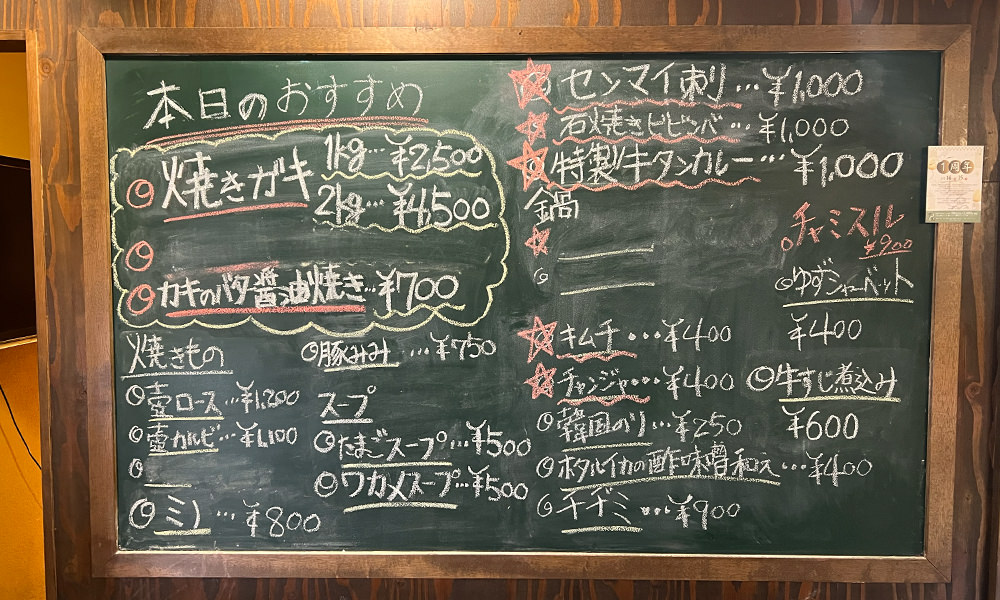 本日のおすすめ
焼きガキ 1kg…¥2,500
2kg…¥4,500
カキのバタ醤油焼き…¥700
焼きもの
壺ロース…¥1,200
壺カルビ…¥1,100
ミノ…¥800
豚みみ…¥750
スープ
たまごスープ…¥500
ワカメスープ…¥500
センマイ刺…¥1,000
石焼きビビンバ…¥1,000
特製牛タンカレー…¥1,000
鍋
キムチ…¥400
チャンジャ…¥400
韓国のり…¥250
ホタルイカの酢味噌和え…¥400
チヂミ…¥900
チャミスル
¥900
ゆずシャーベット
¥400
牛すじ煮込み
¥600
1周年